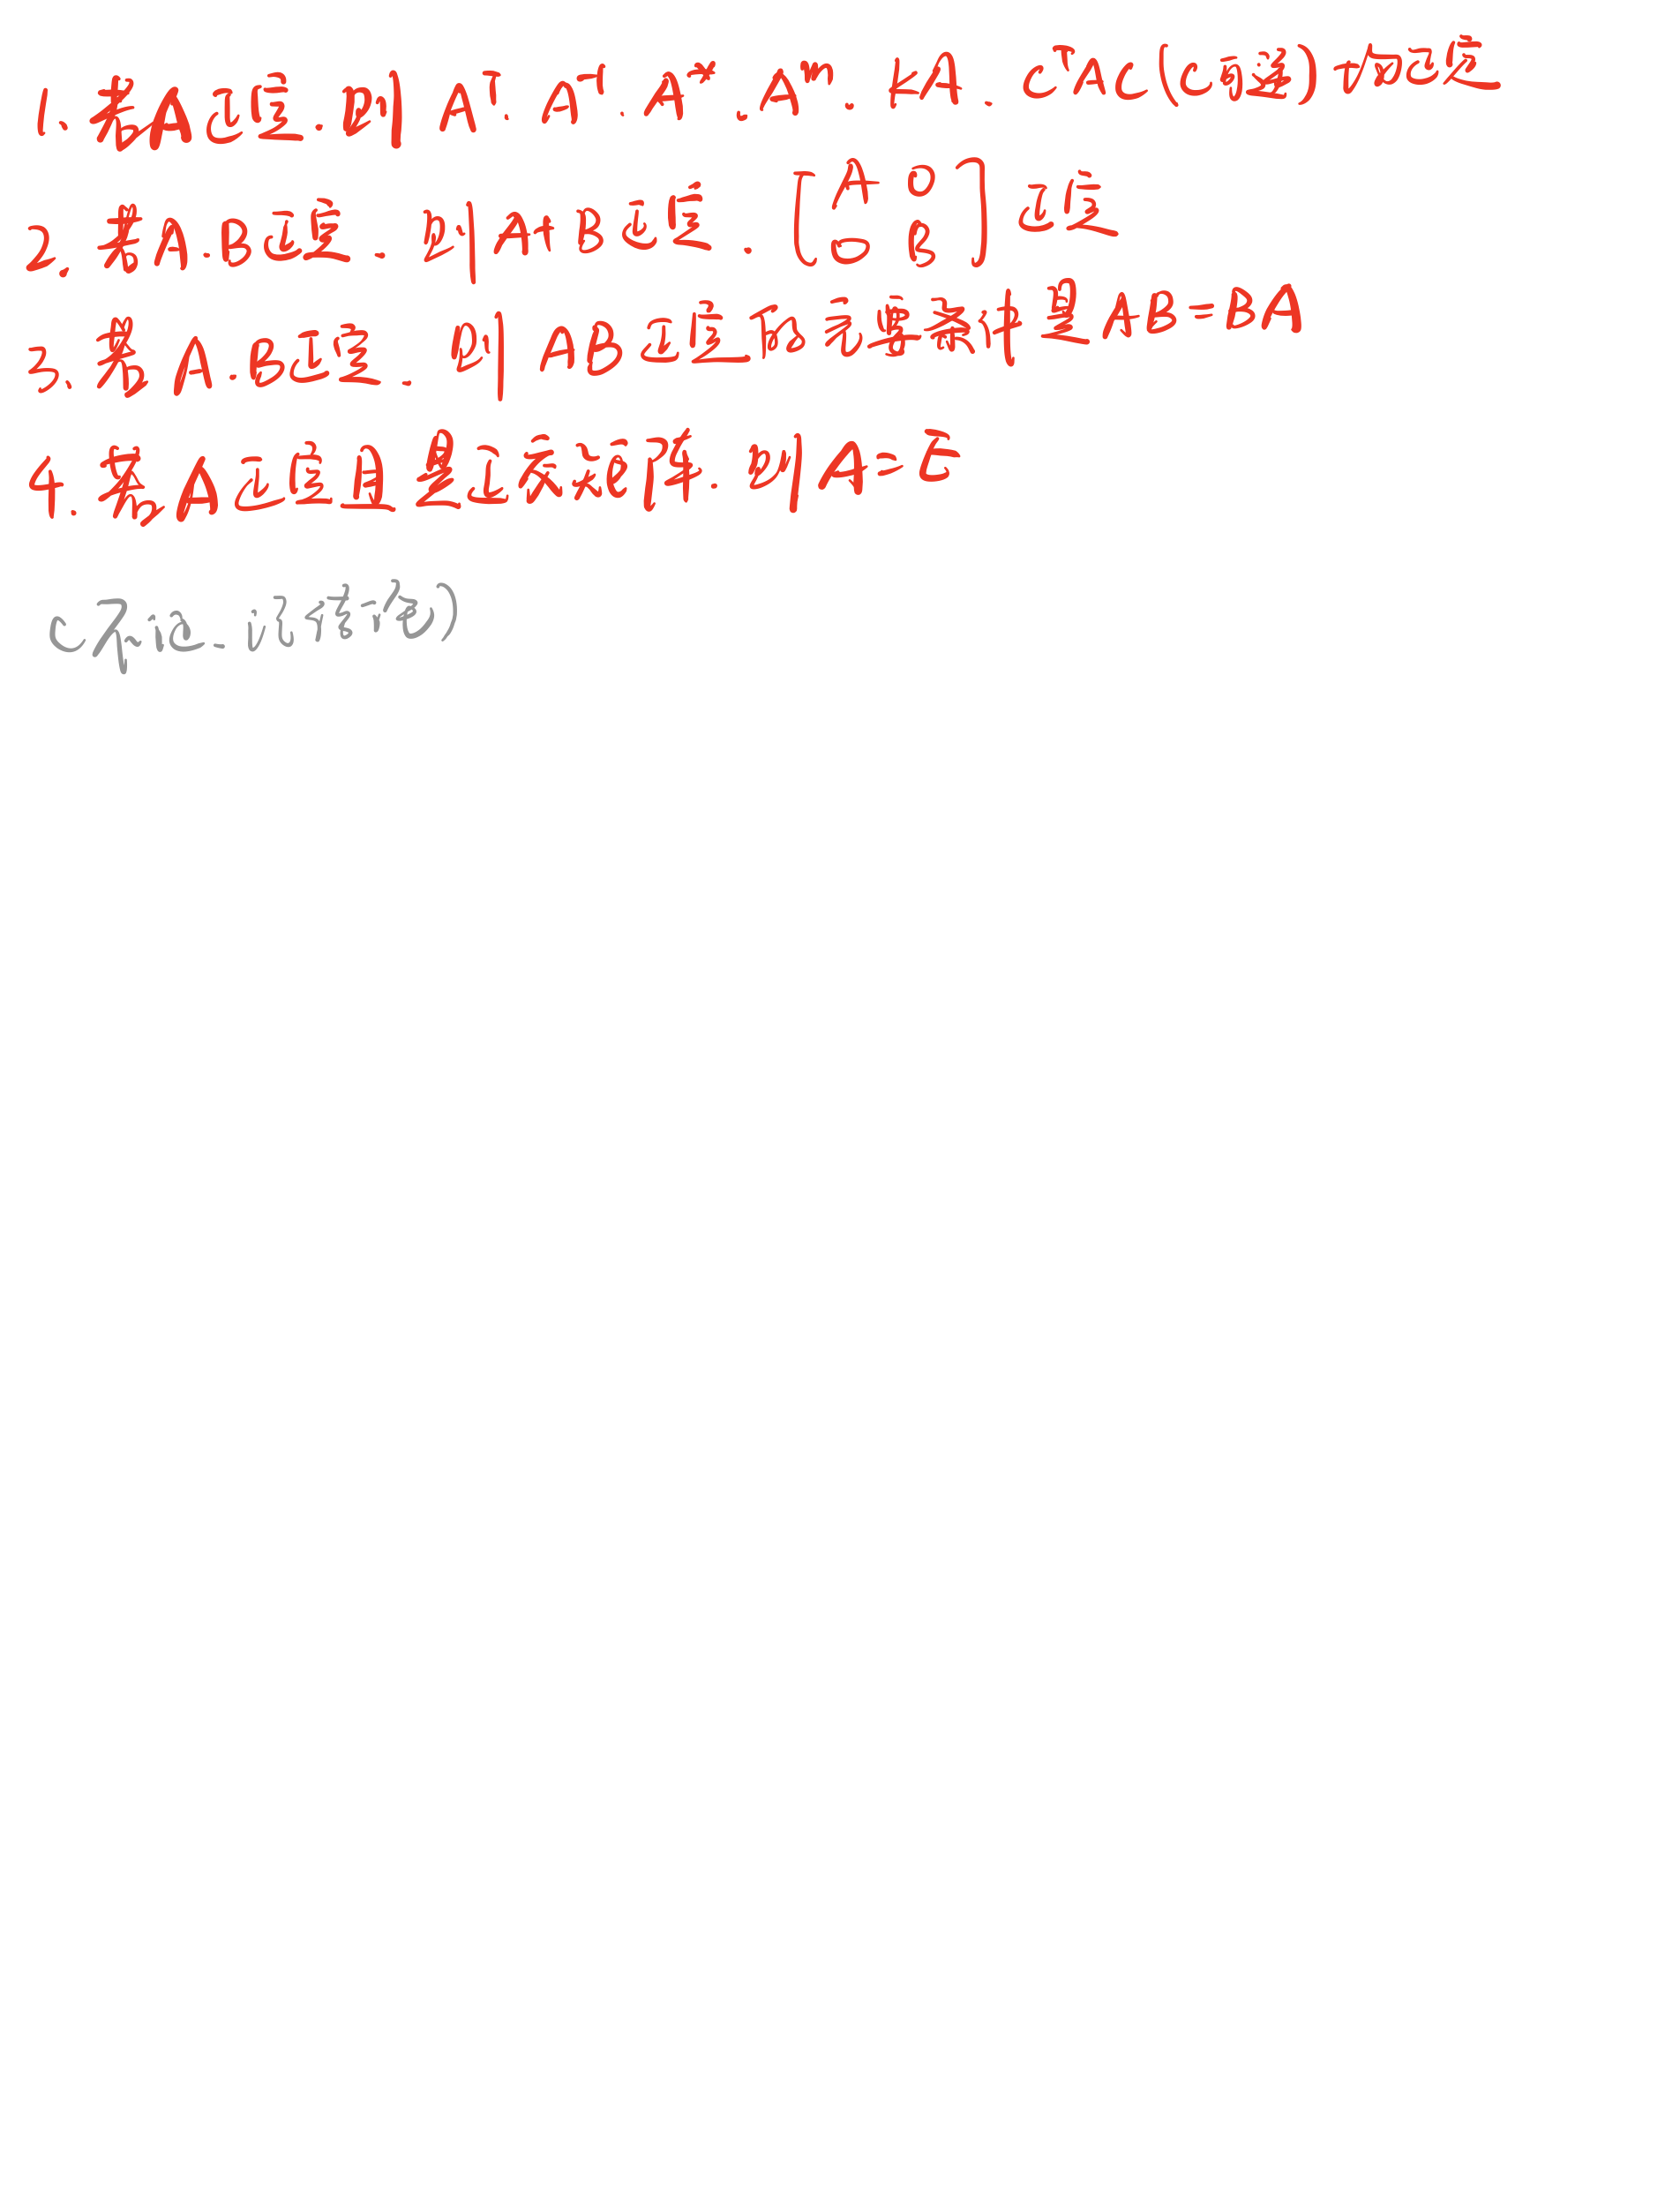 1. 若A正定.则 Aᵀ. A⁻¹. A*. Aᵐ. kA. CᵀAC(C可逆)也正定
2. 若A.B正定. 则A+B正定. [A O O B] 正定
3. 若A.B正定. 则AB正定的充要条件是AB=BA
4. 若A正定且是正交矩阵. 则A=E